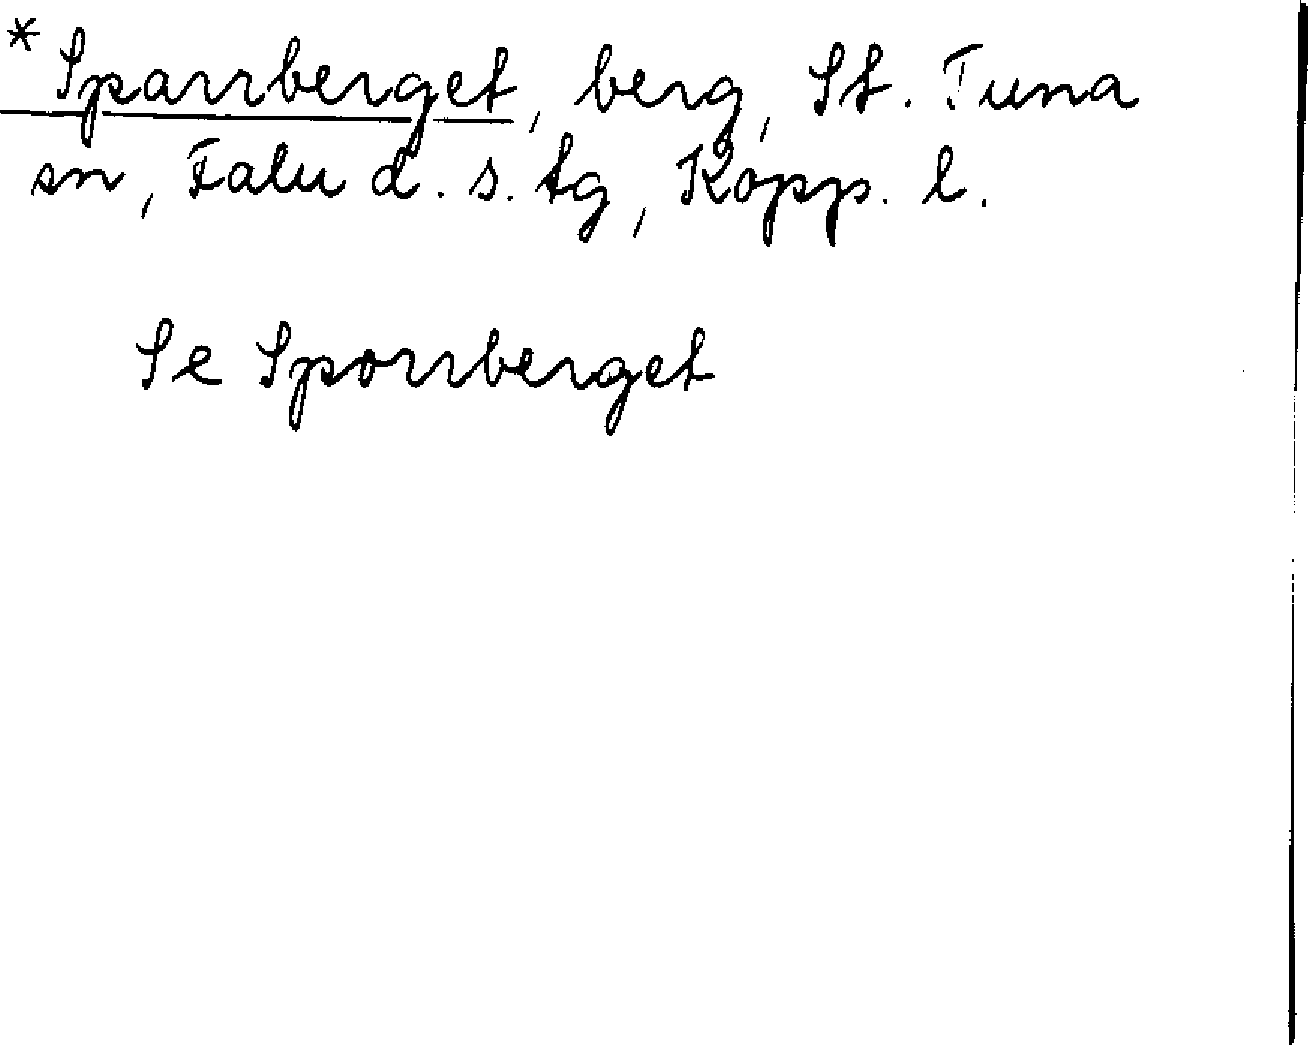 * Sparrberget, berg, St. Tuna
sn, Falu d. s. tg, Kopp. l.
Se Sporrberget